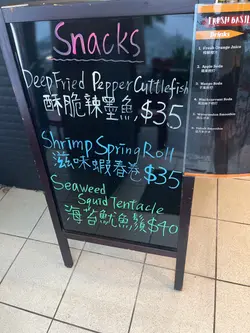 Snacks
Deep Fried Pepper Cuttlefish
酥脆辣墨魚 $35
Shrimp Spring Roll
滋味蝦春卷 $35
Seaweed
Squid Tentacle
海苔魷魚鬚 $40
FRESH BASIL
Drinks
1. Fresh Orange Juice
2. Apple Soda
3. Mango Soda